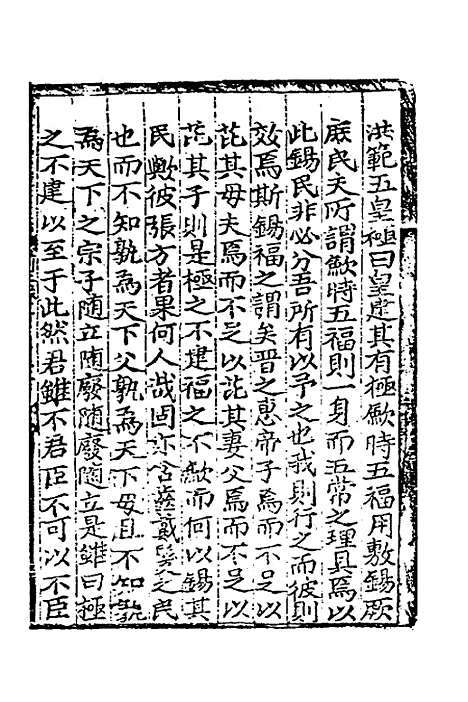 洪範五皇極曰皇建其有極歛時五福用敷錫厥
庶民夫所謂歛時五福則一身而五常之理具焉以
此錫民非必分吾所有以予之也我則行之而彼則
效焉斯錫福之謂矣晋之惠帝子焉而不足以
託其母夫焉而不足以託其妻父焉而不足以
託其子則是極之不建福之不歛而何以錫其
民歟彼張方者果何人哉固亦含齒戴髮之民
也而不知孰為天下父孰為天下母且不知孰
為天下之宗子随立随廢随廢随立是雖曰極
之不建以至于此然君雖不君臣不可以不臣